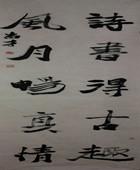 詩書得古趣
風月真情